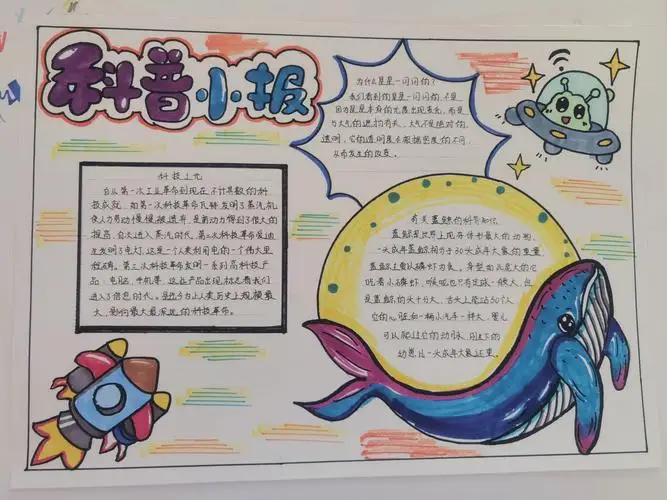 科普小报
为什么星星一闪闪的?
我们看到的星星一闪闪的,不是
因为星星本身的光度出现变化,而是
与大气的遮挡有关,大气不是绝对的
透明,它的透明度会根据密度的不同
从而发生的改变。
科技之光
自从第一次工业革命到现在,不计其数的科
技成就,如第一次科技革命瓦特发明了蒸汽机
使人力劳动慢慢被遗弃,是劳动力得到了很大的
提高,自大进入蒸汽时代。第二次科技革命爱迪
生发明了电灯,这是一个人类利用电的一个伟大里
程碑。第三次科技革命发明一系列高科技产
品:电脑、手机等,这些产品出现,标志着我们
进入了信息时代。是迄今为止人类历史上规模最
大,影响最大最深远的科技革命。
有关蓝鲸的科普知识
蓝鲸是世界上现存体积最大的动物,
一头成年蓝鲸相当于30头成年大象的重量
蓝鲸主要以磷虾为食,身型如此庞大的它
吃着小磷虾,喉咙也只有足球一般大,但
是蓝鲸的头十分大,舌头上能站50个人
它的心脏如一辆小汽车一样大,婴儿
可以爬过它的动脉,刚生下的
幼崽比一头成年大象还重。